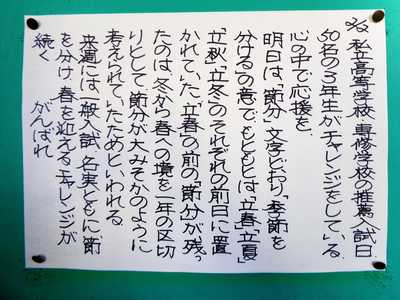 2/2 私立高等学校、専修学校の推薦入試日.
50名の3年生がチャレンジをしている.
心の中で応援を.
明日は、節分. 文字どおり「季節を
分ける」の意でもともとは「立春」「立夏」
「立秋」「立冬」のそれぞれの前日に置
かれていた.「立春の前の「節分が残っ
たのは、冬から春への境を一年の区切
りとして、節分が大みそかのように
考えられていたためといわれる.
来週には、一般入試、名実ともに、節
を分け、春を迎えるチャレンジが
続く　がんばれ